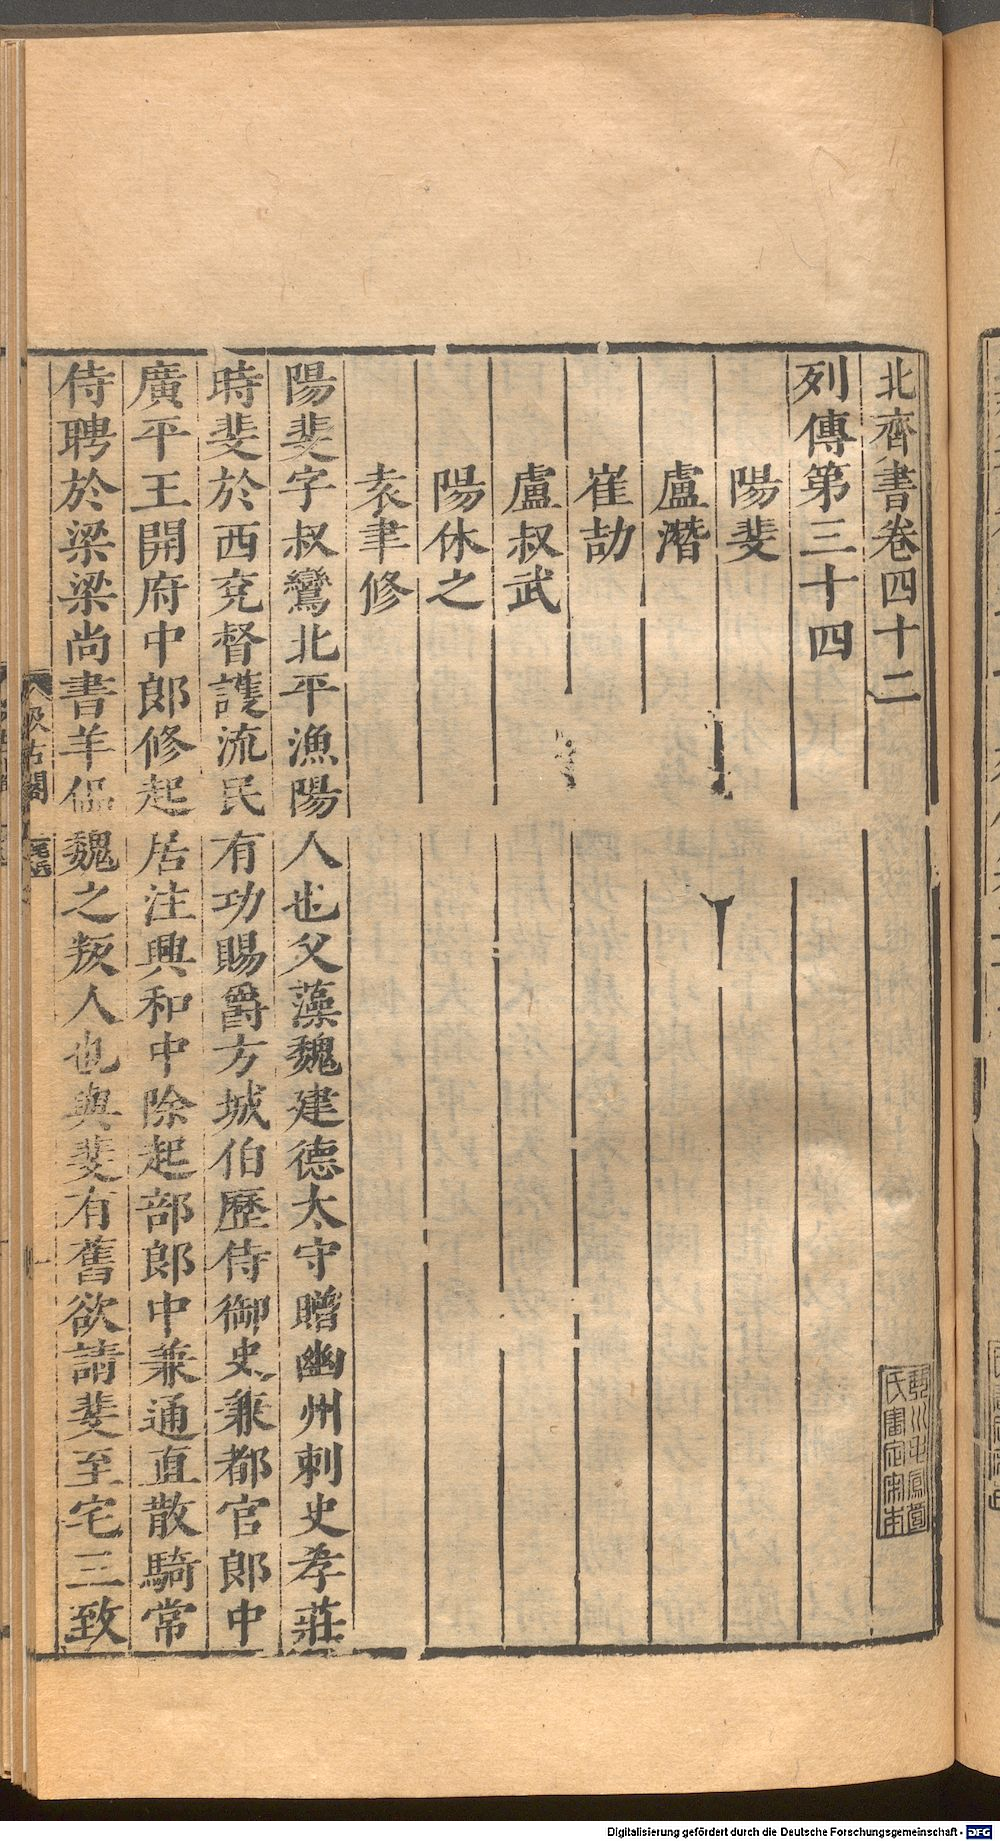 北齊書卷四十二
列傳第三十四
陽斐
盧潛
崔劼
盧叔武
陽休之
袁聿修
陽斐字叔鸞北平漁陽人也父藻魏建德太守贈幽州刺史孝莊
時斐於西兖督護流民有功賜爵方城伯歷侍御史兼都官郎中
廣平王開府中郎修起居注興和中除起部郎中兼通直散騎常
侍聘於梁梁尚書羊侃魏之叛人也與斐有舊欲請斐至宅三致
汲古閣
Digitalisierung gefördert durch die Deutsche Forschungsgemeinschaft - DFG